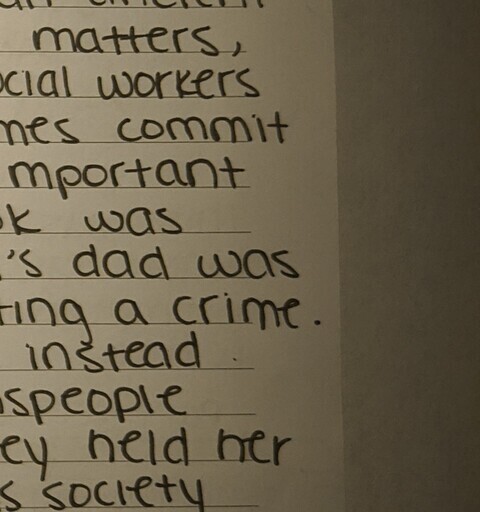 matters,
ocial workers
mes commit
mportant
ok was
's dad was
ting a crime.
instead
speople
ey held her
s society